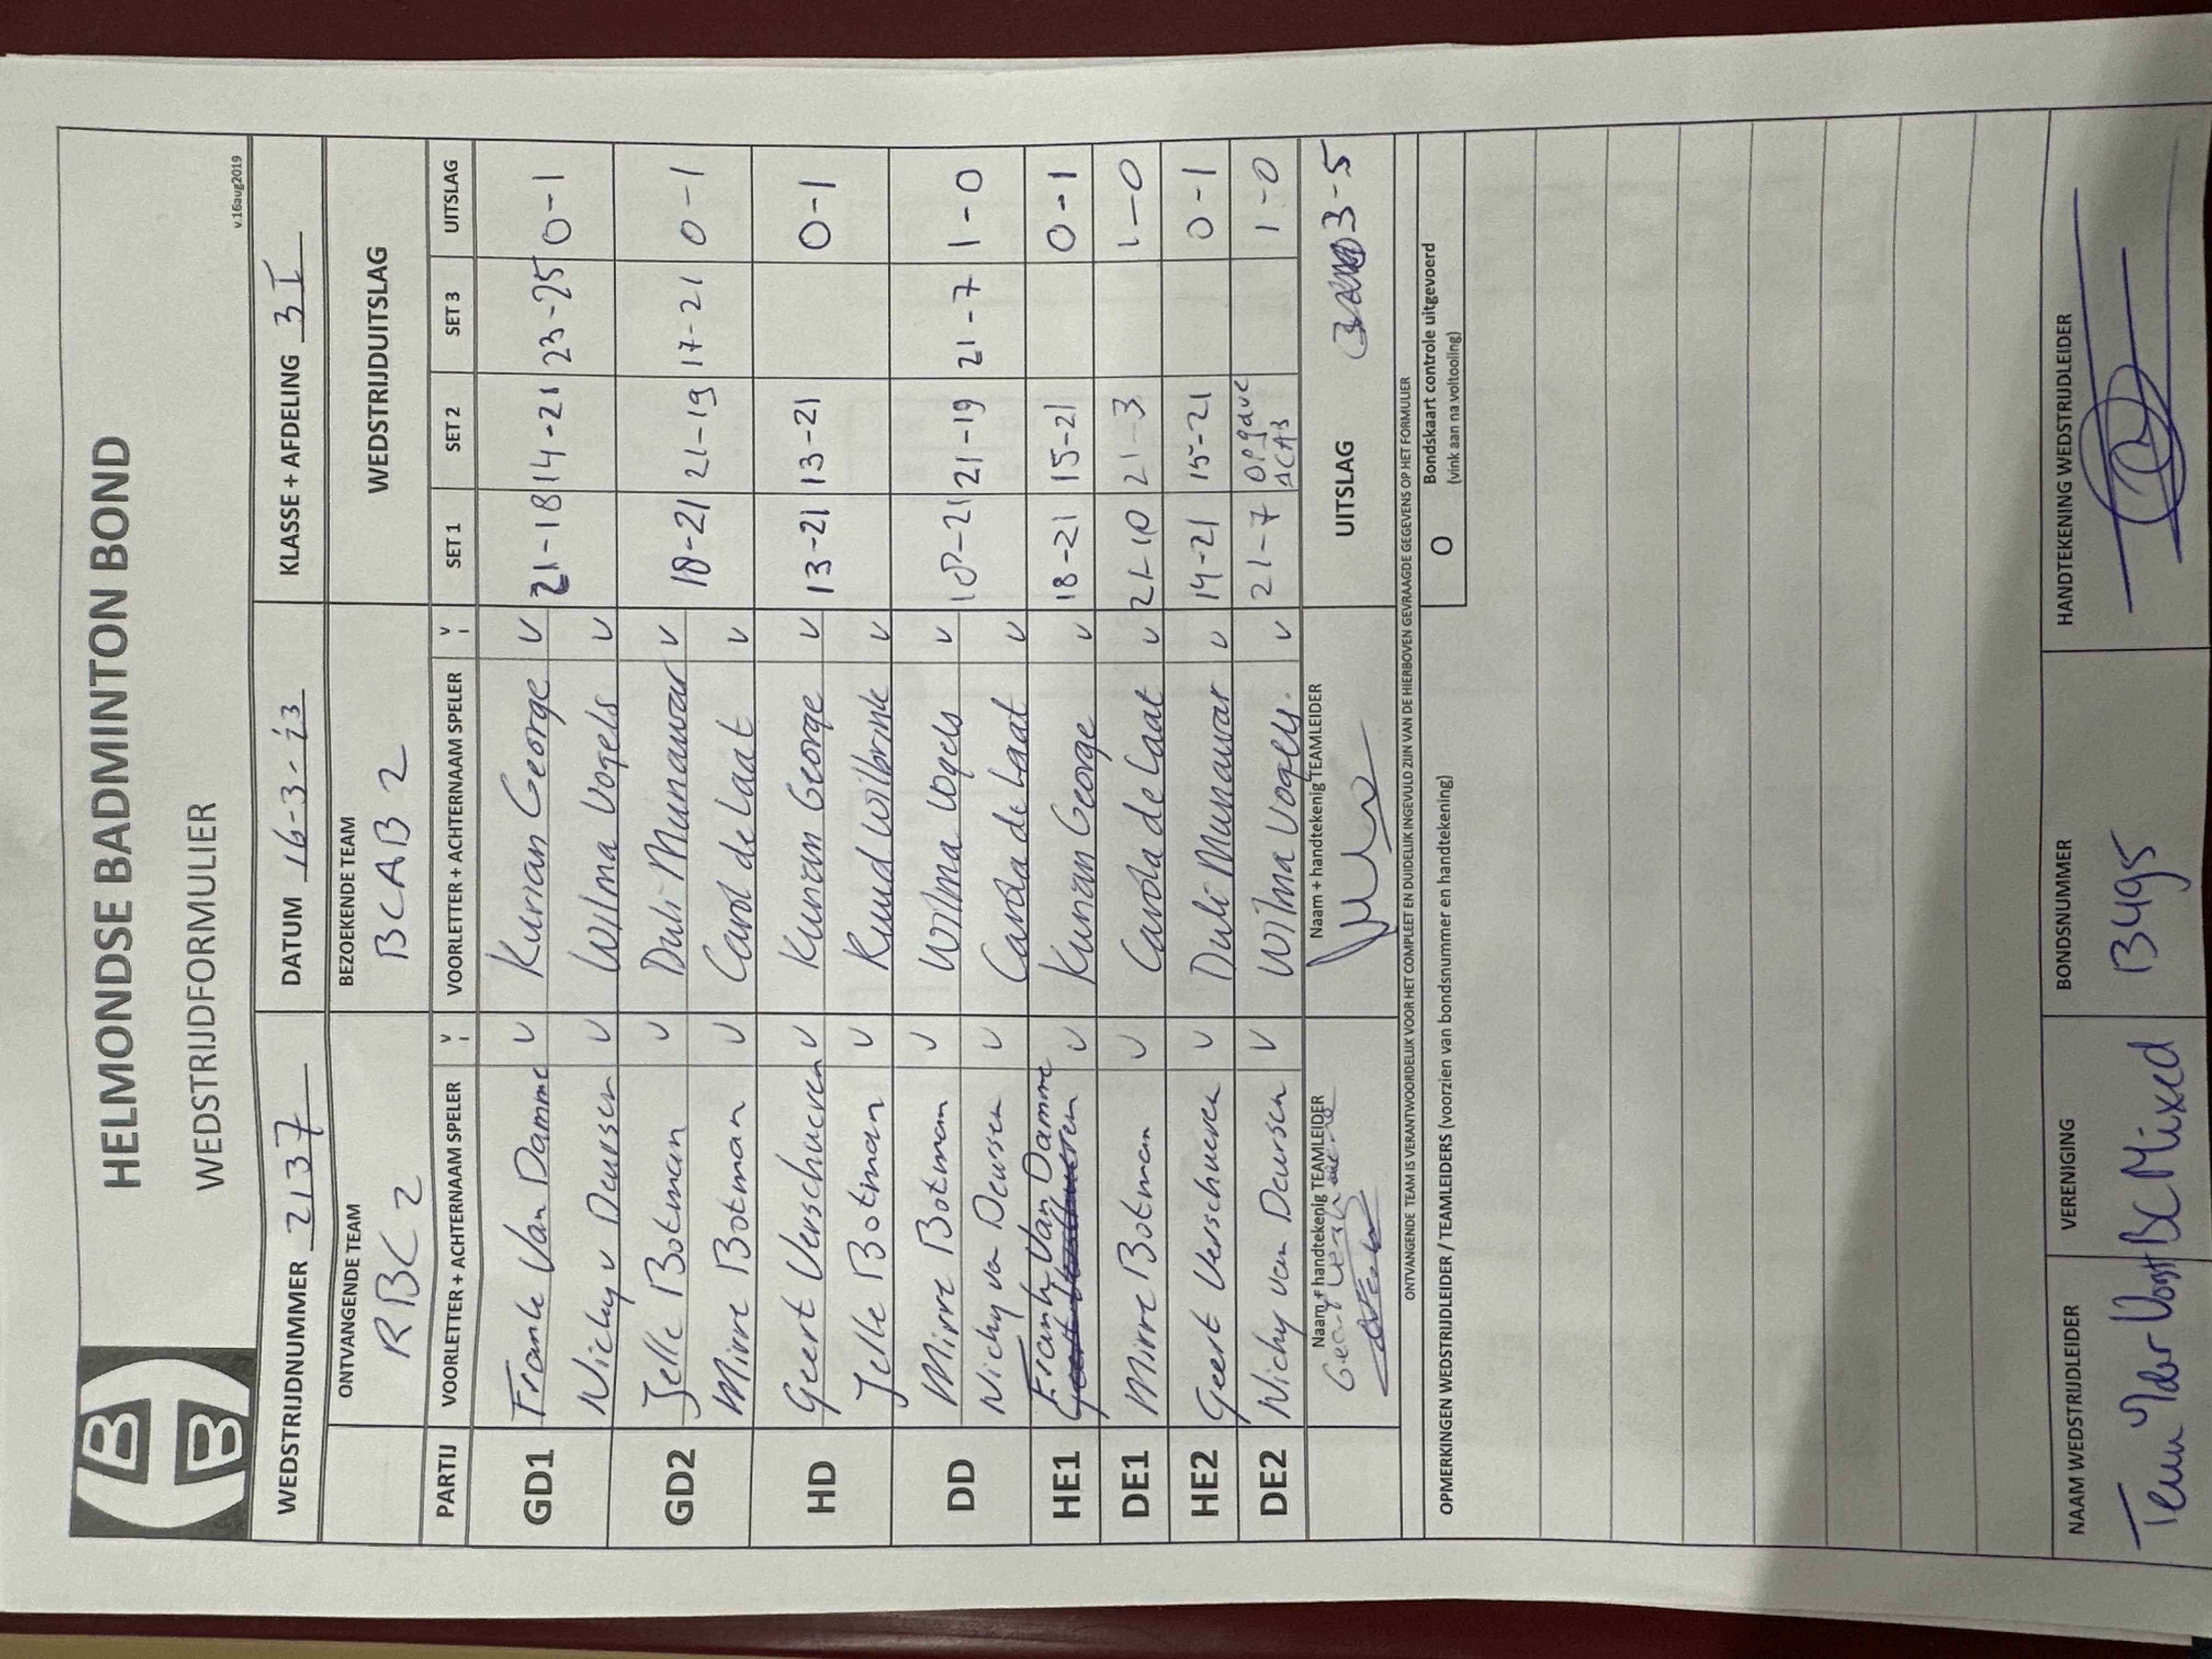 HELMONDSE BADMINTON BOND
WEDSTRIJDFORMULIER
v.16aug2019
WEDSTRIJDNUMMER 2137 DATUM 16-3-23 KLASSE + AFDELING 3I
ONTVANGENDE TEAM BEZOEKENDE TEAM WEDSTRIJDUITSLAG
RBC 2 BCAB 2
PARTIJ VOORLETTER + ACHTERNAAM SPELER V VOORLETTER + ACHTERNAAM SPELER V SET 1 SET 2 SET 3 UITSLAG
GD1 Frank Van Damme V Kurian George V 21-18 14-21 23-25 0-1
Nichy v Deursen V Wilma Vogels V
GD2 Jelle Botman V Duli Munawar V 18-21 21-19 17-21 0-1
Mirre Botman V Carol de Laat V
HD Geert Verschueren V Kurian George V 13-21 13-21 0-1
Jelle Botman V Ruud Wilbrink V
DD Mirre Botman V Wilma Vogels V 18-21 21-19 21-7 1-0
Nichy va Deursen V Carola de Laat V
HE1 Frank Van Damme V Kurian George V 18-21 15-21 0-1
DE1 Mirre Botman V Carola de Laat V 21-10 21-3 1-0
HE2 Geert Verschueren V Duli Munawar V 14-21 15-21 0-1
DE2 Nichy van Deursen V Wilma Vogels. V 21-7 opgave BCAB 1-0
Naam + handtekenig TEAMLEIDER Naam + handtekenig TEAMLEIDER UITSLAG 3-5
ONTVANGENDE TEAM IS VERANTWOORDELIJK VOOR HET COMPLEET EN DUIDELIJK INGEVULD ZIJN VAN DE HIERBOVEN GEVRAAGDE GEGEVENS OP HET FORMULIER
O Bondskaart controle uitgevoerd
(vink aan na voltooling)
OPMERKINGEN WEDSTRIJDLEIDER / TEAMLEIDERS (voorzien van bondsnummer en handtekening)
NAAM WEDSTRIJDLEIDER VERENIGING BONDSNUMMER HANDTEKENING WEDSTRIJDLEIDER
BC Mixed B495